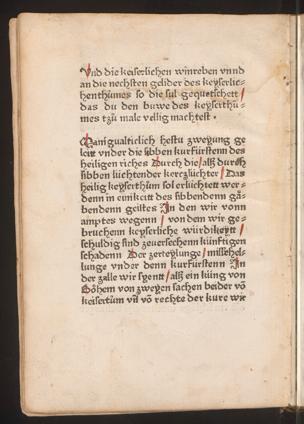 Und die keiserlichen winreben vnnd
an die nechsten gelider des keyserlic-
henthumes so die sul gequetschett /
das du den buwe des keyserthu-
mes tzů male vellig machtest ·
Manigualticlich hestu zweyung ge
leitt vnder die sibben kurfürstenn des
heiligen riches Durch die / alß durch
sibben luchtender kerczlüchter / Das
heilig keyserthům sol erlüchtett wer-
denn in eunikeitt des sibbendenn gā-
bendenn geistes In den wir vonn
amptes wegenn / von dem wir ge-
bruchenn keyserliche wirdikeytt /
schuldig sind zeuersechenn künftigen
schadenn Der zerteylunge / misshel-
lunge vnder denn kurfürstenn In
der zalle wir syentt / alß ein küng von
Böhem von zweyen sachen beider vō
keisertům vn̄ vō rechte der kure wir